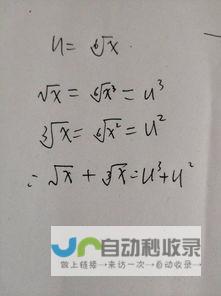 u = ⁶√x.
√x = ⁶√x³ = u³
³√x = ⁶√x² = u²
∴ √x + ³√x = u³ + u²
自动秒收录
做上链接→来访一次→自动收录